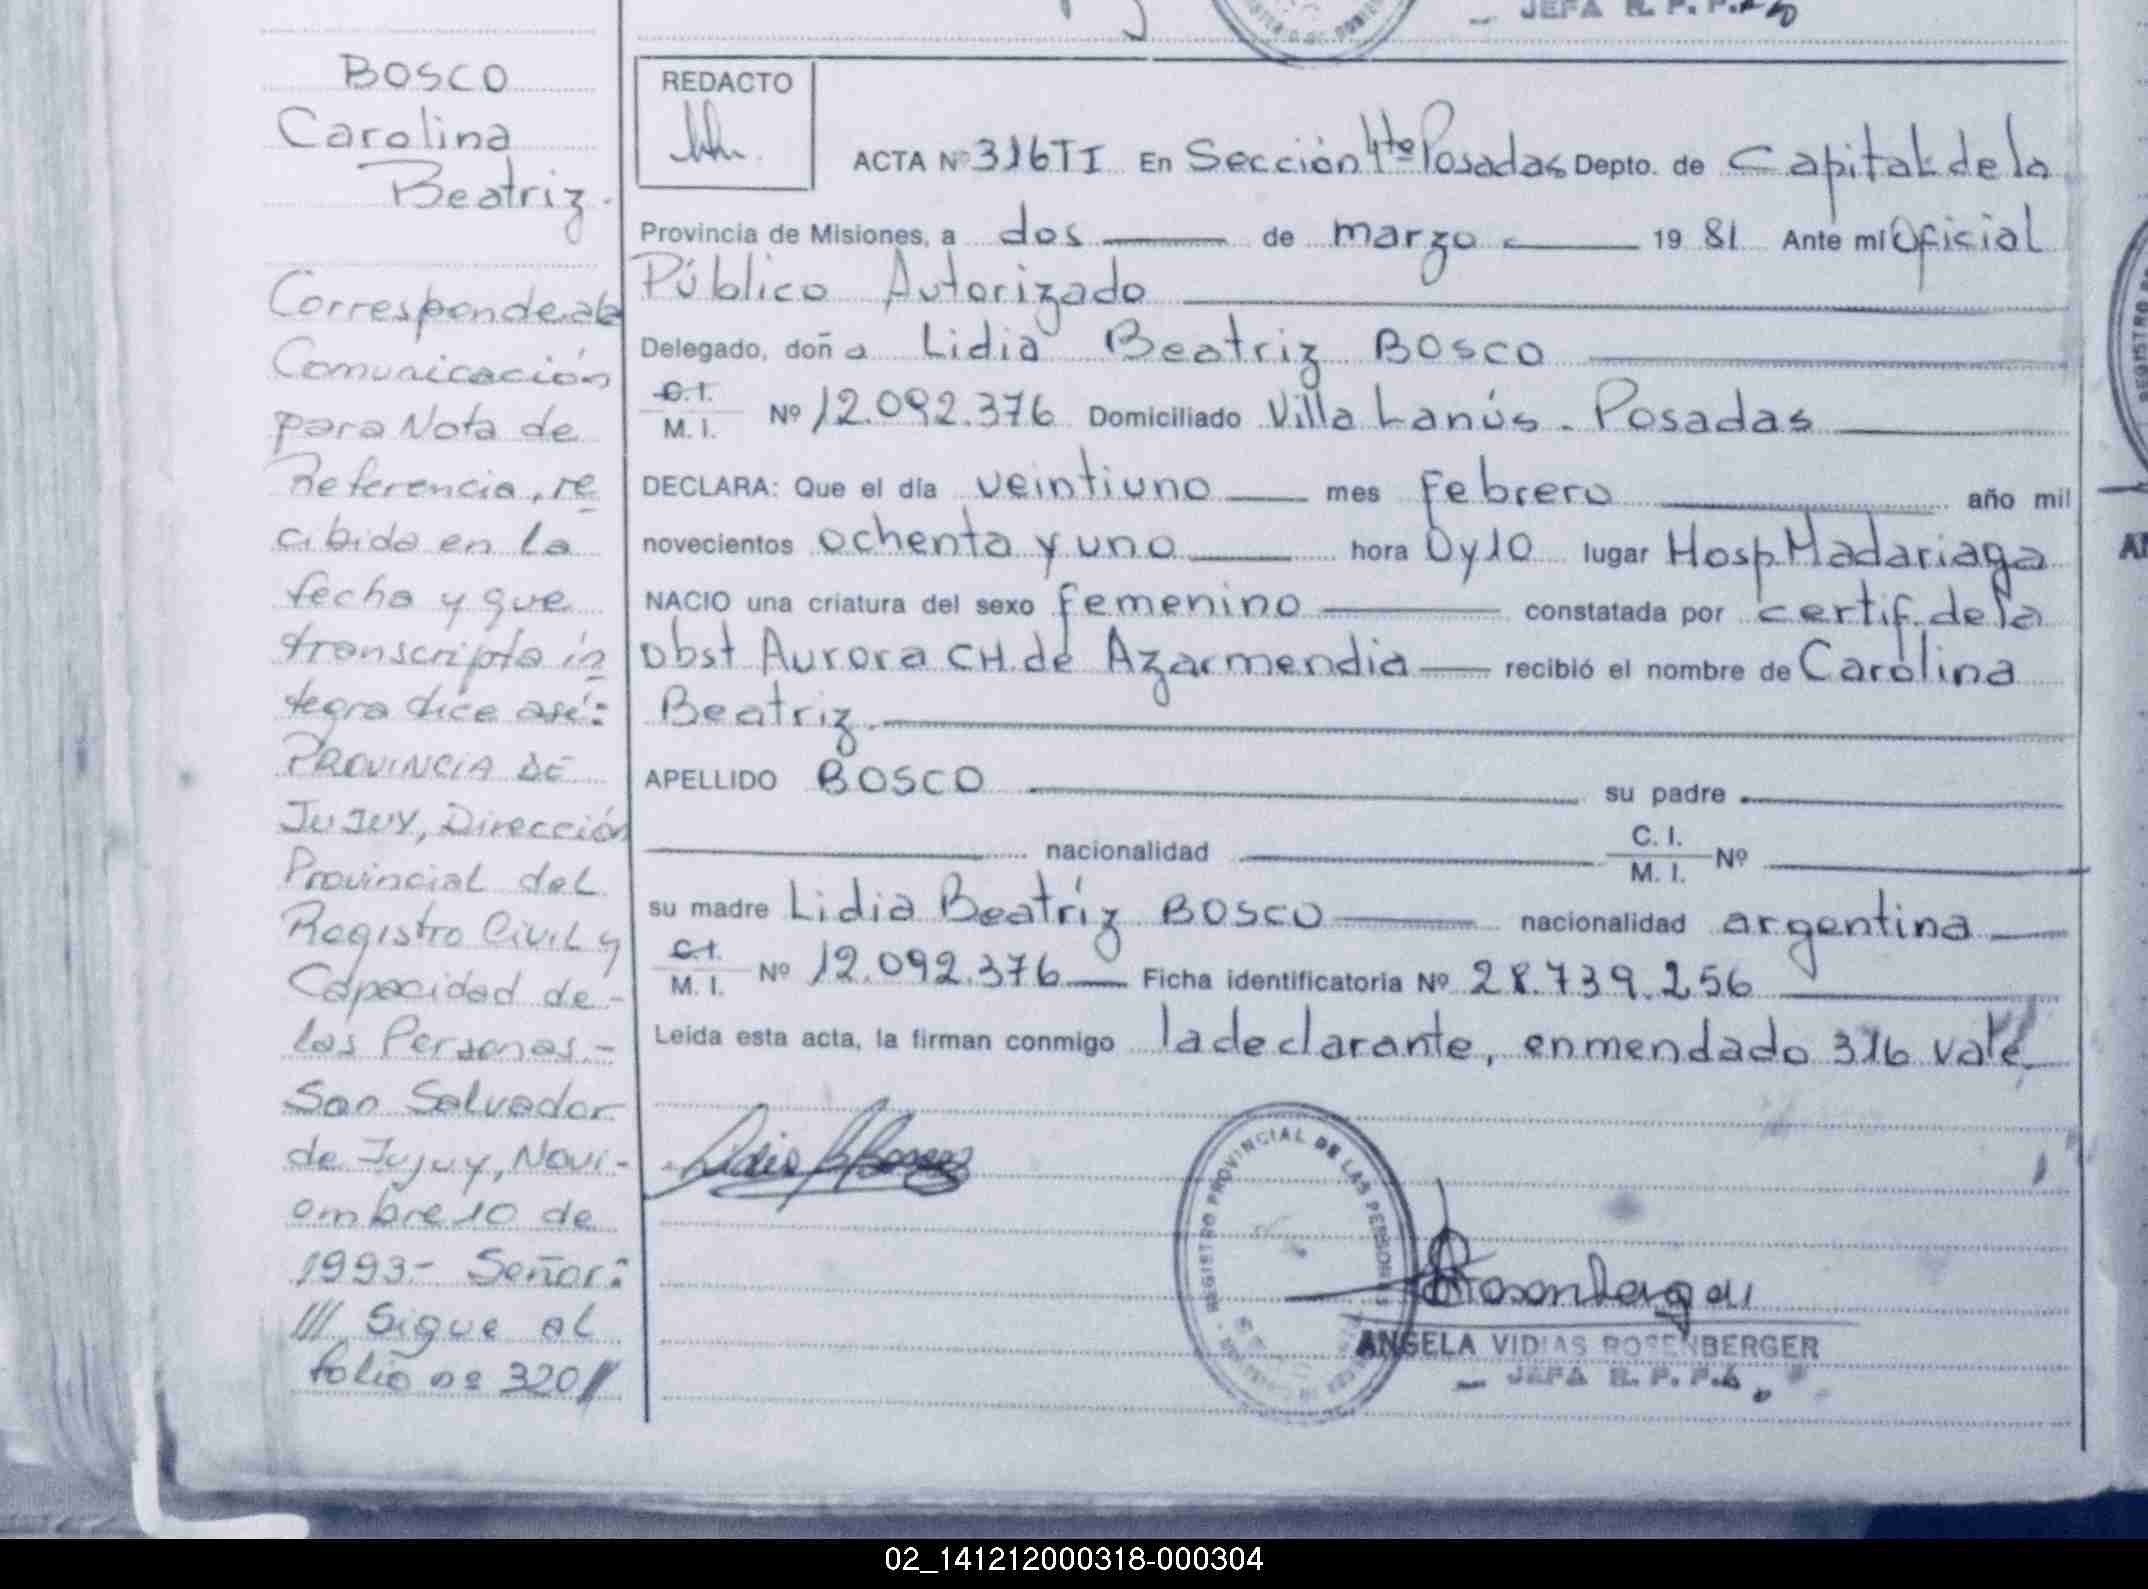 JEFA R. P. P.
BOSCO
Carolina
Beatriz.
Corresponde a la
Comunicación
para Nota de
Referencia, re
cibida en la
fecha y que
transcripta ín
tegra dice así:
PROVINCIA DE
JUJUY, Dirección
Provincial del
Registro Civil y
Capacidad de-
las Personas.-
San Salvador
de Jujuy, Novi-
embre 10 de
1993- Señor:
/// Sigue al
folio nº 320//
REDACTO
ACTA Nº 316TI En Sección 4to Posadas Depto. de Capital de la
Provincia de Misiones, a dos de marzo 19 81 Ante mi Oficial
Público Autorizado
Delegado, doña Lidia Beatriz BOSCO
C.I.
M. I. Nº 12.092.376 Domiciliado Villa Lanús - Posadas
DECLARA: Que el día veintiuno mes febrero año mil
novecientos ochenta y uno hora 0y10 lugar Hosp. Madariaga
NACIO una criatura del sexo femenino constatada por certif. de la
obst Aurora CH. de Azarmendia recibió el nombre de Carolina
Beatriz.
APELLIDO BOSCO su padre
nacionalidad C. I.
M. I. Nº
su madre Lidia Beatríz BOSCO nacionalidad argentina
C.I.
M. I. Nº 12.092.376 Ficha identificatoria Nº 28.739.256
Leída esta acta, la firman conmigo la declarante, enmendado 316 vale
REGISTRO PROVINCIAL DE LAS PERSONAS
Rosenberger
ANGELA VIDIAS ROSENBERGER
JEFA R. P. P.
02_141212000318-000304